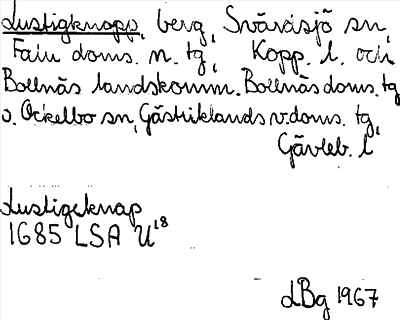 Lustigknapp, berg, Svärdsjö sn,
Falu doms. n. tg, Kopp. l. och
Bollnäs landskomm. Bollnäs doms. tg
o. Ockelbo sn, Gästriklands v. doms. tg,
Gävleb. l
Lustigeknap
1685 LSA U18
LBg 1967